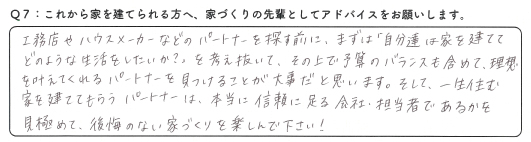 Q7：これから家を建てられる方へ、家づくりの先輩としてアドバイスをお願いします。
工務店やハウスメーカーなどのパートナーを探す前に、まずは「自分達は家を建てて
どのような生活をしたいか？」を考え抜いて、その上で予算のバランスも含めて、理想
を叶えてくれるパートナーを見つけることが大事だと思います。そして、一生住む
家を建ててもらうパートナーは、本当に信頼に足る会社・担当者であるかを
見極めて、後悔のない家づくりを楽しんで下さい！